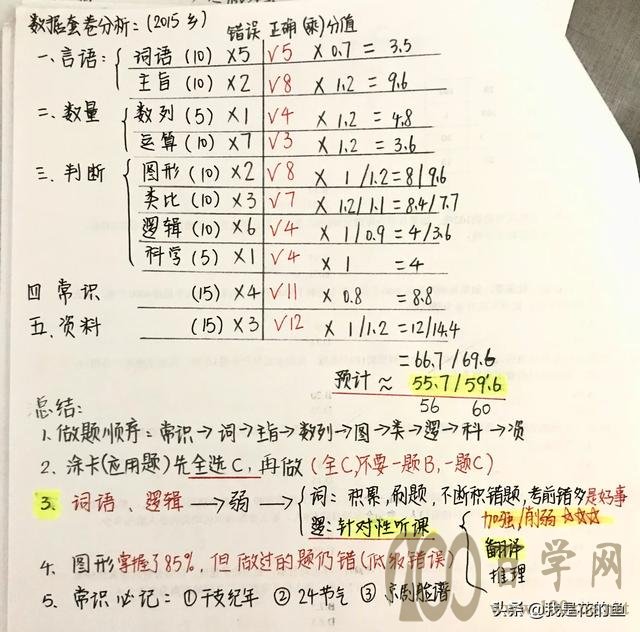 数据套卷分析:(2015乡) 错误 正确 (乘)分值
一、言语: 词语 (10) ×5 √5 × 0.7 = 3.5
主旨 (10) ×2 √8 × 1.2 = 9.6
二、数量 数列 (5) ×1 √4 × 1.2 = 4.8
运算 (10) ×7 √3 × 1.2 = 3.6
三、判断 图形 (10) ×2 √8 × 1/1.2=8/9.6
类比 (10) ×3 √7 × 1.2/1.1=8.4/7.7
逻辑 (10) ×6 √4 × 1/0.9=4/3.6
科学 (5) ×1 √4 × 1 =4
四 常识 (15) ×4 √11 × 0.8 =8.8
五、资料 (15) ×3 √12 × 1/1.2=12/14.4
=66.7/69.6
预计≈ 55.7/59.6
56 60
总结:
1. 做题顺序:常识→词→主旨→数列→图→类→逻→科→资
2. 涂卡(应用题)先全选C,再做(全C,不要一题B,一题C)
3. 词语、逻辑→弱→ 词:积累,刷题,不断积错题,考前错多是好事
逻:针对性听课 加强/削弱 ☆☆☆
翻译
推理
4. 图形掌握了85%,但做过的题仍错(低级错误)
5. 常识必记:①干支纪年 ②24节气 ③京剧脸谱
100自学网
头条 @我是花的鱼